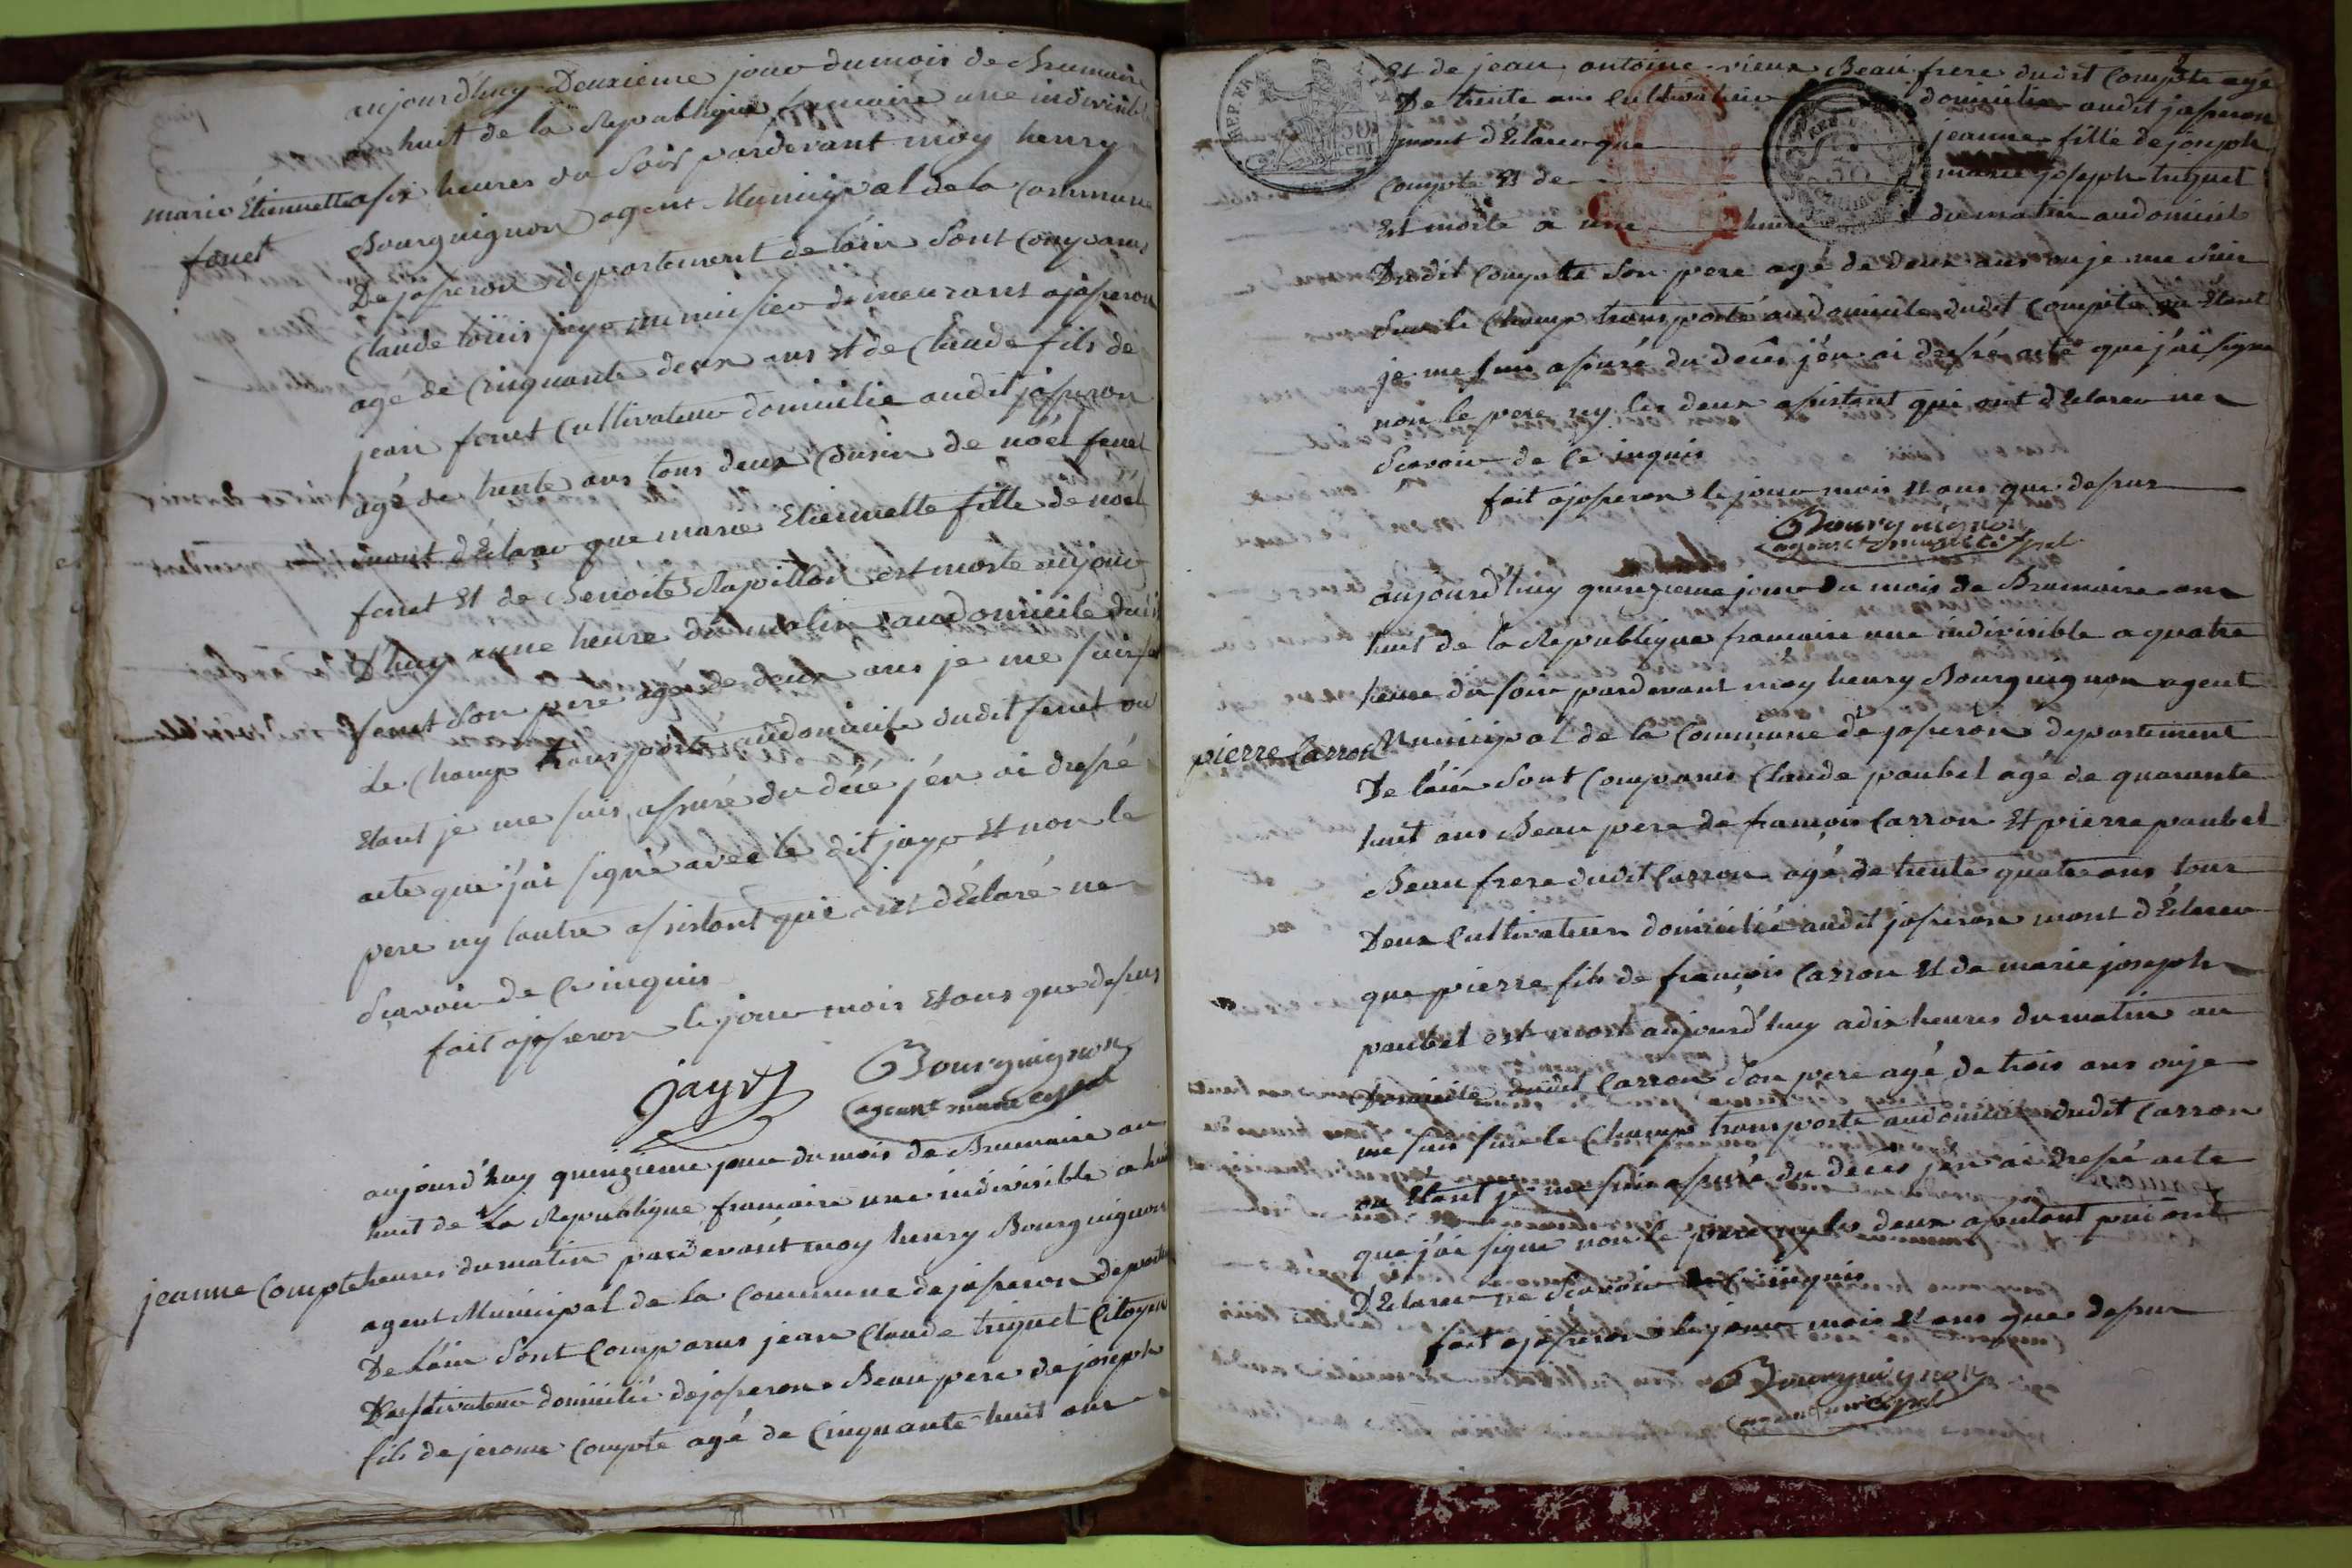 aujourd'huy Deuxieme jour du mois de Brumaire
huit de la Republique francaise une indivisible
marie Étiennette
fonet
a six heures du Soir pardevant moy henry
Bourguignon agent Municipal de la Commune
De josseron departement de l'ain Sont comparus
Claude loüis jayr menuisier demeurant a josseron
agé de Cinquante deux ans et de Claude fils de
jean fonet Cultivateur domicilié audit josseron
agé de trente ans tous deux Cousin de noël fonet
mont déclaré que marie Etiennette fille de noël
fonet Et de Benoite Rapillon est morte aujour
D'huy a une heure du matin au domicile dudit
fonet Son pere agée de deux ans je me suis sur
Le Champ transporté au domicile dudit fonet ou
Etant je me suis assuré du décé j'en ai dressé
acte que j'ai signé avec le dit jayr Et non le
pere ny l'autre assistant qui ont déclaré ne
Sçavoir de Ce inquis
fait a josseron le jour mois Et ans que dessus
jayr
Bourguignon
agent municipal
aujourd'huy quinzieme jour du mois de Brumaire an
huit de La Republique francaise une indivisible a huit
jeanne Compte
heures du matin pardevant moy henry Bourguignon
agent Municipal de la Commune de josseron departement
De l'ain Sont Comparus jean Claude triquet Citoyen
Cultivateur domicilié de josseron Beau pere de joseph
fils de jerome Compte agé de Cinquante huit ans
2
Et de jean antoine vieux Beau frere dudit Compte agé
De trente ans Cultivateur domicilié audit josseron
mont déclaré que jeanne fille de joseph
Compte Et de marie joseph triquet
Est morte a une heure du matin au domicile
Dudit Compte Son pere agé de deux ans ou je me suis
Sur le Champ transporté au domicile dudit Compte ou Etant
je me suis assuré du decès j'en ai dressé acte que j'ai signé
non le pere ny les deux assistant qui ont déclaré ne
Scavoir de Ce inquis
fait a josseron le jour mois Et ans que dessus
Bourguignon
agent municipal
aujourd'huy quinzieme jour du mois de Brumaire an
huit de la Republique francaise une indivisible a quatre
heure du soir pardevant moy henry Bourguignon agent
pierre Carron
Municipal de la Commune de josseron departement
De l'ain Sont Comparus Claude paubel agé de quarante
huit ans Beau pere de françois Carron Et pierre paubel
Beau frere dudit Carron agé de trente quatre ans tous
Deux Cultivateur domicilié audit josseron mont déclaré
que pierre fils de françois Carron Et de marie joseph
paubel est mort aujourd'huy a dix heures du matin au
Domicile dudit Carron Son pere agé de trois ans ou je
me suis sur le Champ transporté au domicile dudit Carron
ou Etant je me suis assuré du decès j'en ai dressé acte
que j'ai signé non le pere ny les deux assistant qui ont
Déclaré ne Scavoir de Ce inquis
fait a josseron le jour mois Et ans que dessus
Bourguignon
agent municipal
REP. FRA.
50
cent